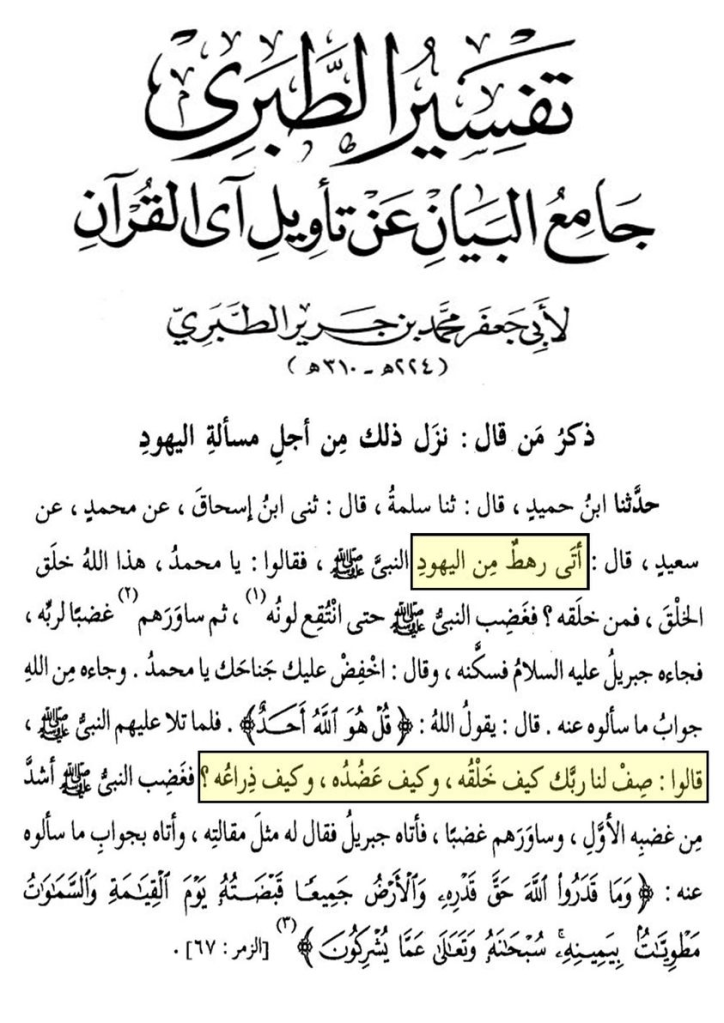 تَفْسِيرُ الطَّبَرِي
جَامِعُ البَيَانِ عَنْ تَأْوِيلِ آيِ القُرْآنِ
لأَبِي جَعفَر مُحَمَّد بن جَرير الطَّبَرِيّ
(٢٢٤هـ - ٣١٠هـ)
ذكرُ مَن قال : نزَل ذلك مِن أجلِ مسألةِ اليهودِ
حدَّثنا ابنُ حميدٍ ، قال : ثنا سلمةُ ، قال : ثنى ابنُ إسحاقَ ، عن محمدٍ ، عن
سعيدٍ ، قال : أتَى رهطٌ مِن اليهودِ النبىَّ ﷺ ، فقالوا : يا محمدُ ، هذا اللهُ خلَق
الخلْقَ ، فمن خلَقه ؟ فغَضِب النبىُّ ﷺ حتى انْتُقِع لونُه (١) ، ثم ساوَرَهم (٢) غضبًا لربِّه ،
فجاءه جبريلُ عليه السلامُ فسكَّنه ، وقال : اخْفِضْ عليك جَناحَك يا محمدُ . وجاءه مِن اللهِ
جوابُ ما سألوه عنه . قال : يقولُ اللهُ : ﴿ قُلْ هُوَ ٱللَّهُ أَحَدٌ ﴾ . فلما تلا عليهم النبىُّ ﷺ ،
قالوا : صِفْ لنا ربَّك كيف خَلْقُه ، وكيف عَضُدُه ، وكيف ذِراعُه ؟ فغَضِب النبىُّ ﷺ أشدَّ
مِن غضبِه الأوَّلِ ، وساوَرَهم غضبًا ، فأتاه جبريلُ فقال له مثلَ مقالتِه ، وأتاه بجوابِ ما سألوه
عنه : ﴿ وَمَا قَدَرُوا۟ ٱللَّهَ حَقَّ قَدْرِهِۦ وَٱلْأَرْضُ جَمِيعًا قَبْضَتُهُۥ يَوْمَ ٱلْقِيَٰمَةِ وَٱلسَّمَٰوَٰتُ
مَطْوِيَّٰتٌۢ بِيَمِينِهِۦ سُبْحَٰنَهُۥ وَتَعَٰلَىٰ عَمَّا يُشْرِكُونَ ﴾ (٣) [الزمر : ٦٧] .